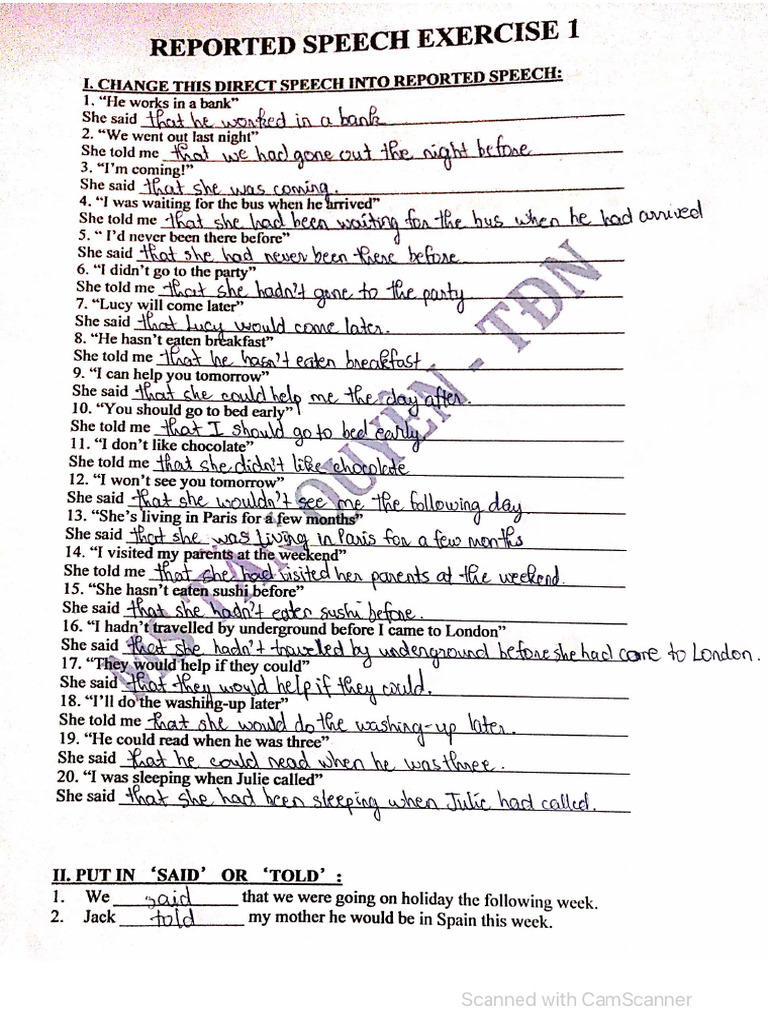 REPORTED SPEECH EXERCISE 1
I. CHANGE THIS DIRECT SPEECH INTO REPORTED SPEECH:
1. “He works in a bank”
She said that he worked in a bank
2. “We went out last night”
She told me that we had gone out the night before
3. “I’m coming!”
She said that she was coming.
4. “I was waiting for the bus when he arrived”
She told me that she had been waiting for the bus when he had arrived
5. “ I’d never been there before”
She said that she had never been there before
6. “I didn’t go to the party”
She told me that she hadn't gone to the party
7. “Lucy will come later”
She said that Lucy would come later.
8. “He hasn’t eaten breakfast”
She told me that he hasn't eaten breakfast
9. “I can help you tomorrow”
She said that she could help me the day after.
10. “You should go to bed early”
She told me that I should go to bed early
11. “I don’t like chocolate”
She told me that she didn't like chocolate
12. “I won’t see you tomorrow”
She said that she wouldn't see me the following day.
13. “She’s living in Paris for a few months”
She said that she was living in Paris for a few months
14. “I visited my parents at the weekend”
She told me that she had visited her parents at the weekend.
15. “She hasn’t eaten sushi before”
She said that she hadn't eaten sushi before.
16. “I hadn’t travelled by underground before I came to London”
She said that she hadn't traveled by underground before she had come to London.
17. “They would help if they could”
She said that they would help if they could.
18. “I’ll do the washing-up later”
She told me that she would do the washing-up later.
19. “He could read when he was three”
She said that he could read when he was three.
20. “I was sleeping when Julie called”
She said that she had been sleeping when Julie had called.
II. PUT IN ‘SAID’ OR ‘TOLD’ :
1. We said that we were going on holiday the following week.
2. Jack told my mother he would be in Spain this week.
QUYÊN - TĐN
Scanned with CamScanner